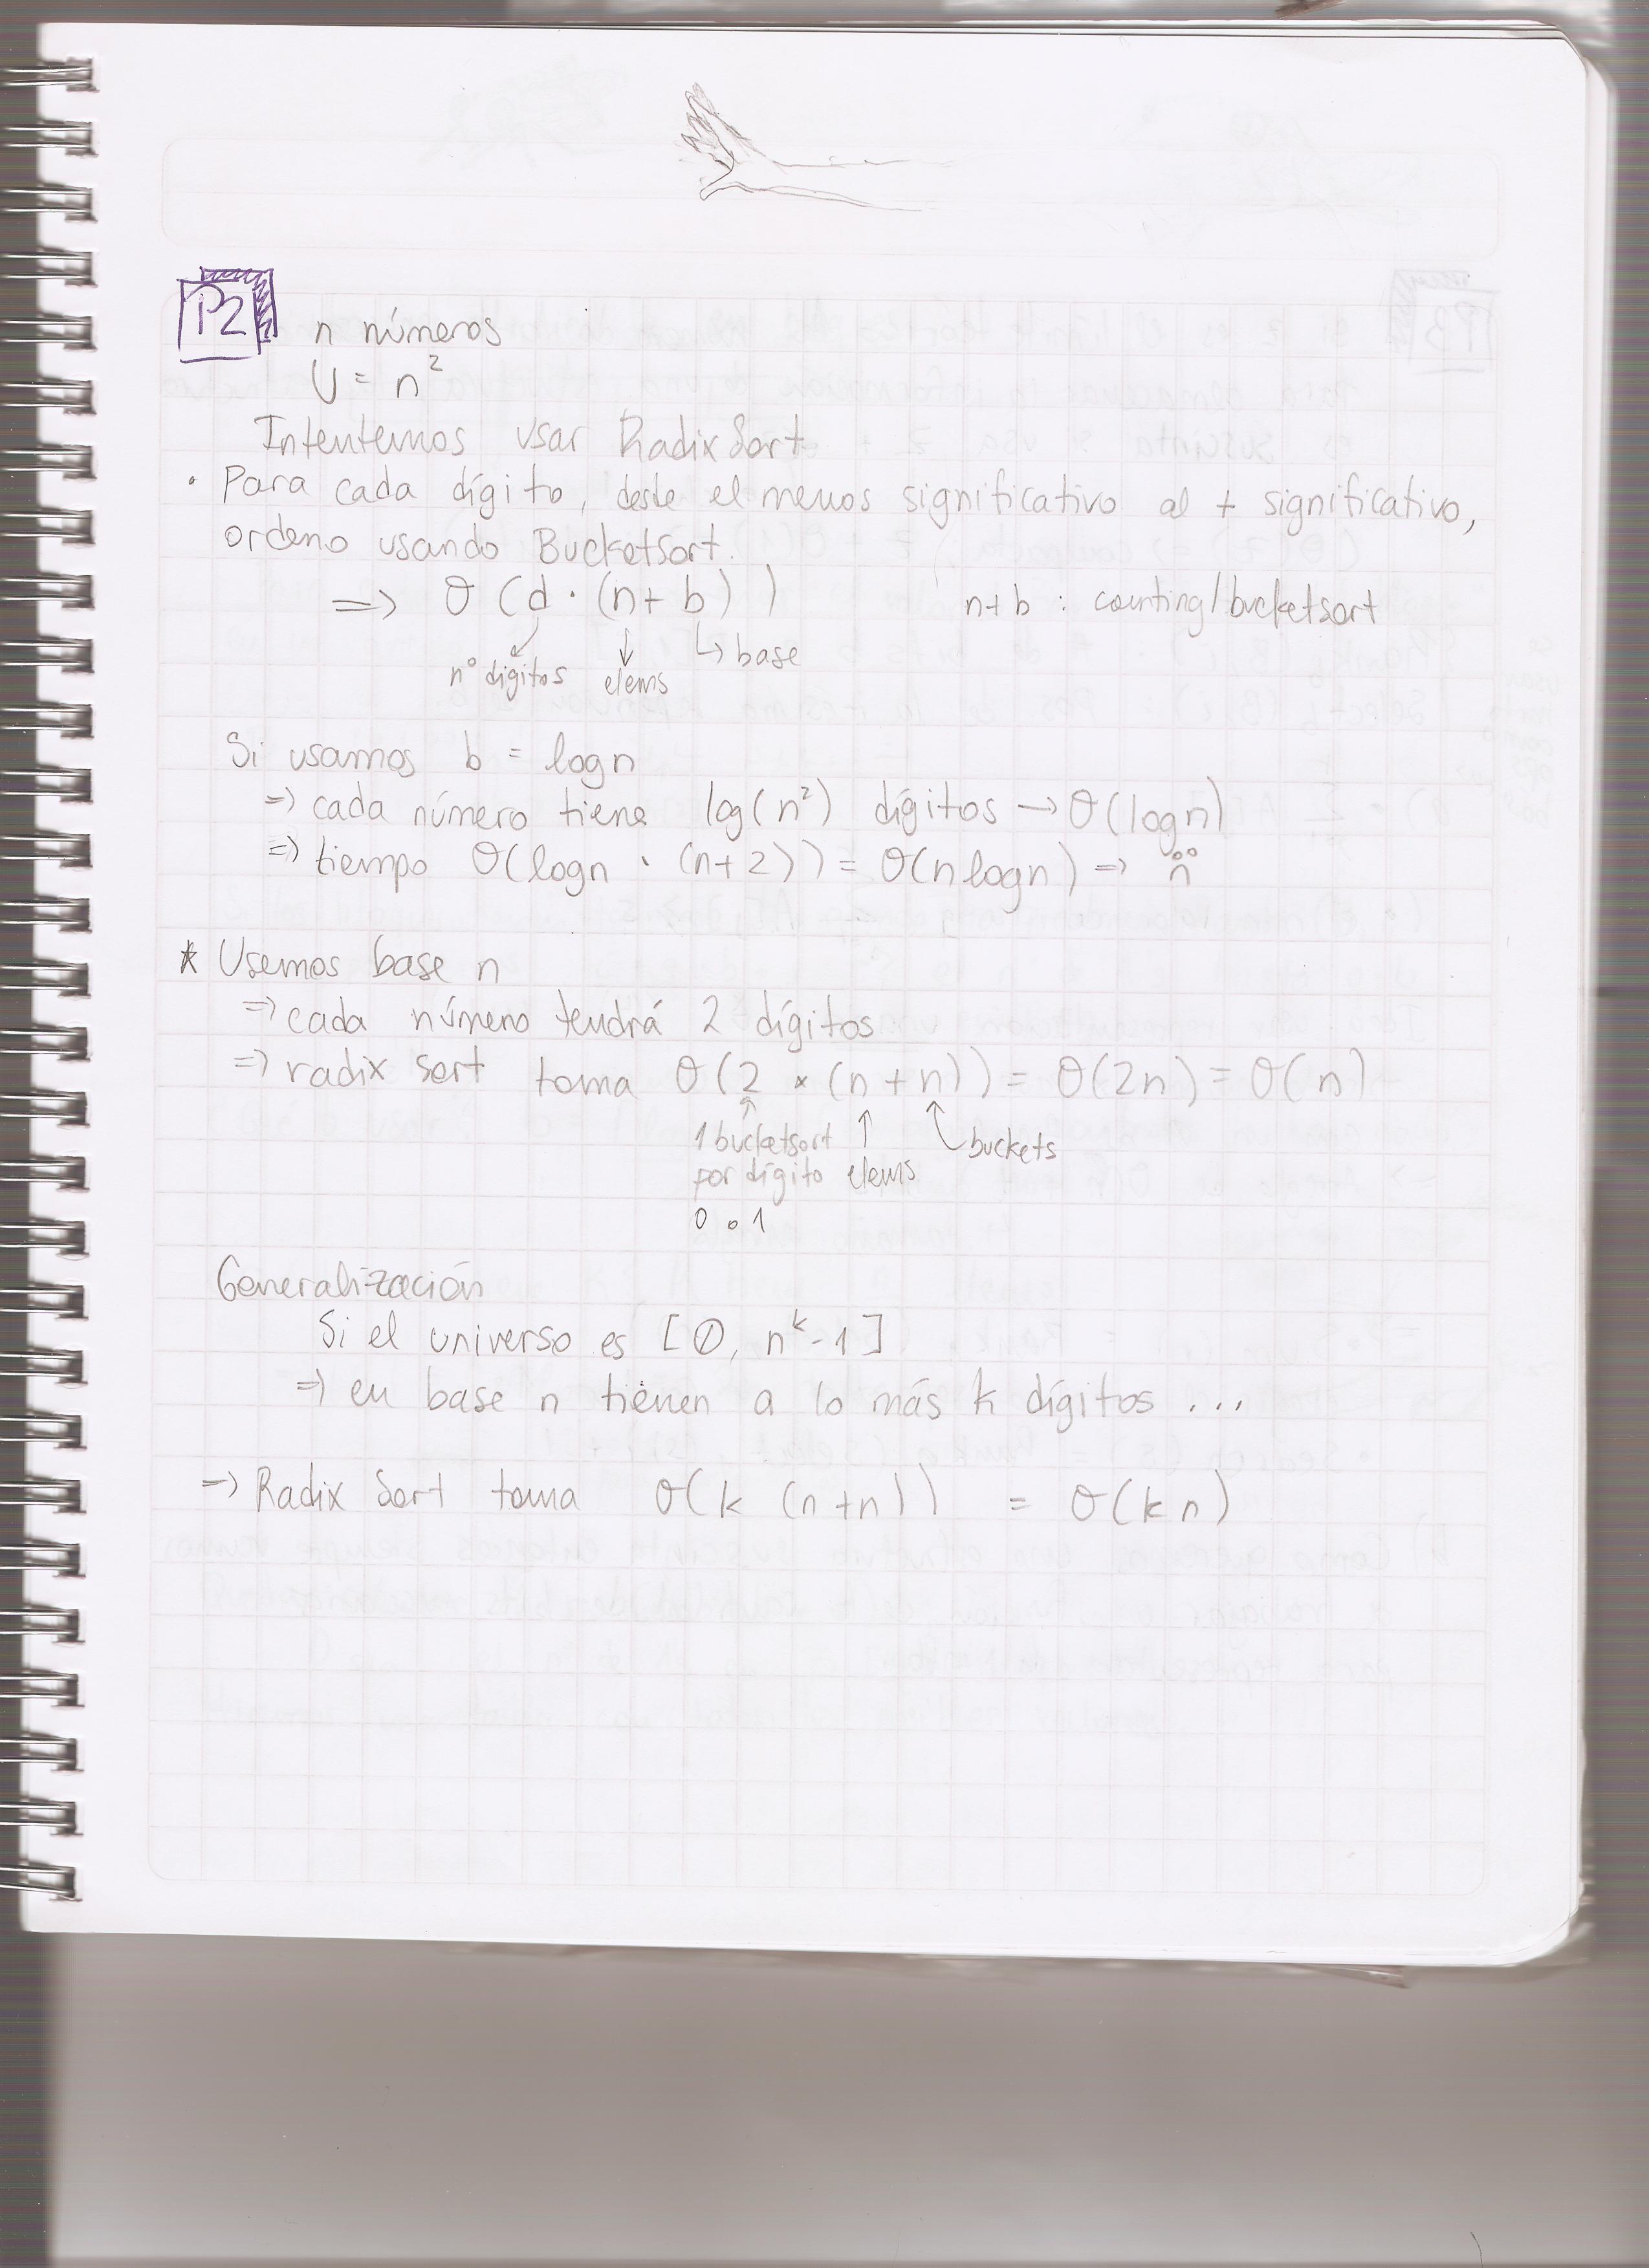 P2
n números
U = n²
Intentemos usar RadixSort
• Para cada dígito, desde el menos significativo al + significativo,
ordeno usando BucketSort.
=> O(d·(n+b)) n+b : counting/bucketsort
n° digitos elems base
Si usamos b = logn
=> cada número tiene log(n²) dígitos → O(logn)
=> tiempo O(logn · (n+2)) = O(nlogn) =>
* Usemos base n
=> cada número tendrá 2 dígitos
=> radix sort toma O(2 × (n+n)) = O(2n) = O(n)
1 bucketsort
por dígito elems buckets
0 o 1
Generalización
Si el universo es [0, nᵏ-1]
=> en base n tienen a lo más k dígitos ...
=> Radix Sort toma O(k (n+n)) = O(kn)